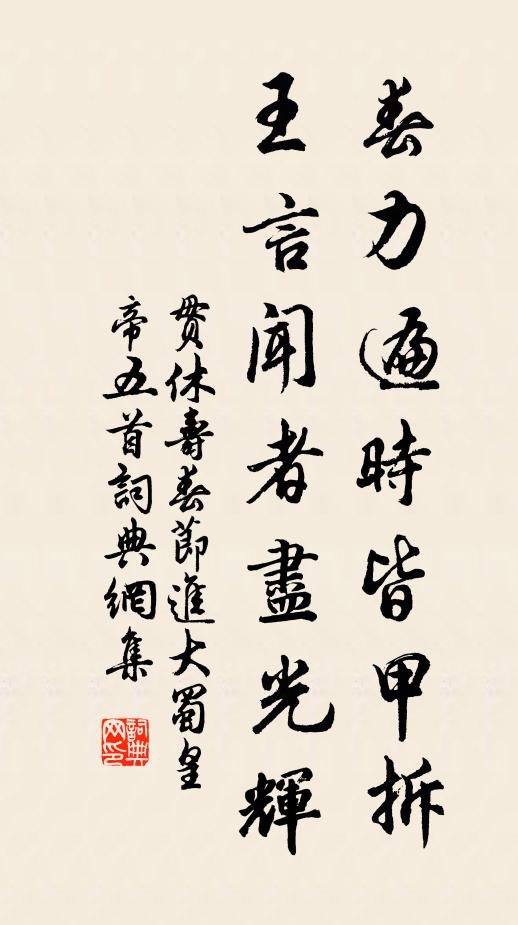 春力遍時皆甲拆
王言聞者盡光輝
貫休壽春節進大蜀皇
帝五首詞典網集
詞典網印